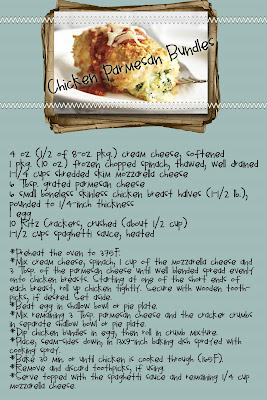 Chicken Parmesan Bundles
4 oz (1/2 of 8-oz pkg.) cream cheese, softened
1 pkg. (10 oz.) frozen chopped spinach, thawed, well drained
1-1/4 cups shredded skim mozzarella cheese
6 Tbsp. grated parmesan cheese
6 small boneless skinless chicken breast halves (1-1/2 lb.),
pounded to 1/4-inch thickness
1 egg
10 Ritz Crackers, crushed (about 1/2 cup)
1-1/2 cups spaghetti sauce, heated
*Preheat the oven to 375F.
*Mix cream cheese, spinach, 1 cup of the mozzarella cheese and
3 Tbsp. of the parmesan cheese until well blended spread evenly
onto chicken breasts. Starting at one of the short ends of
each breast, roll up chicken tightly. Secure with wooden tooth-
picks, if desired. Set aside.
*Beat egg in shallow bowl or pie plate.
*Mix remaining 3 Tbsp. parmesan and the cracker crumbs
in separate shallow bowl or pie plate.
*Dip chicken bundles in egg, then roll in crumb mixture.
*Place, seam-sides down, in 13x9-inch baking dish sprayed with
cooking spray.
*Bake 30 Min. or until chicken is cooked through (165F).
*Remove and discard toothpicks, if using.
*Serve topped with the spaghetti sauce and remaining 1/4 cup
mozzarella cheese.